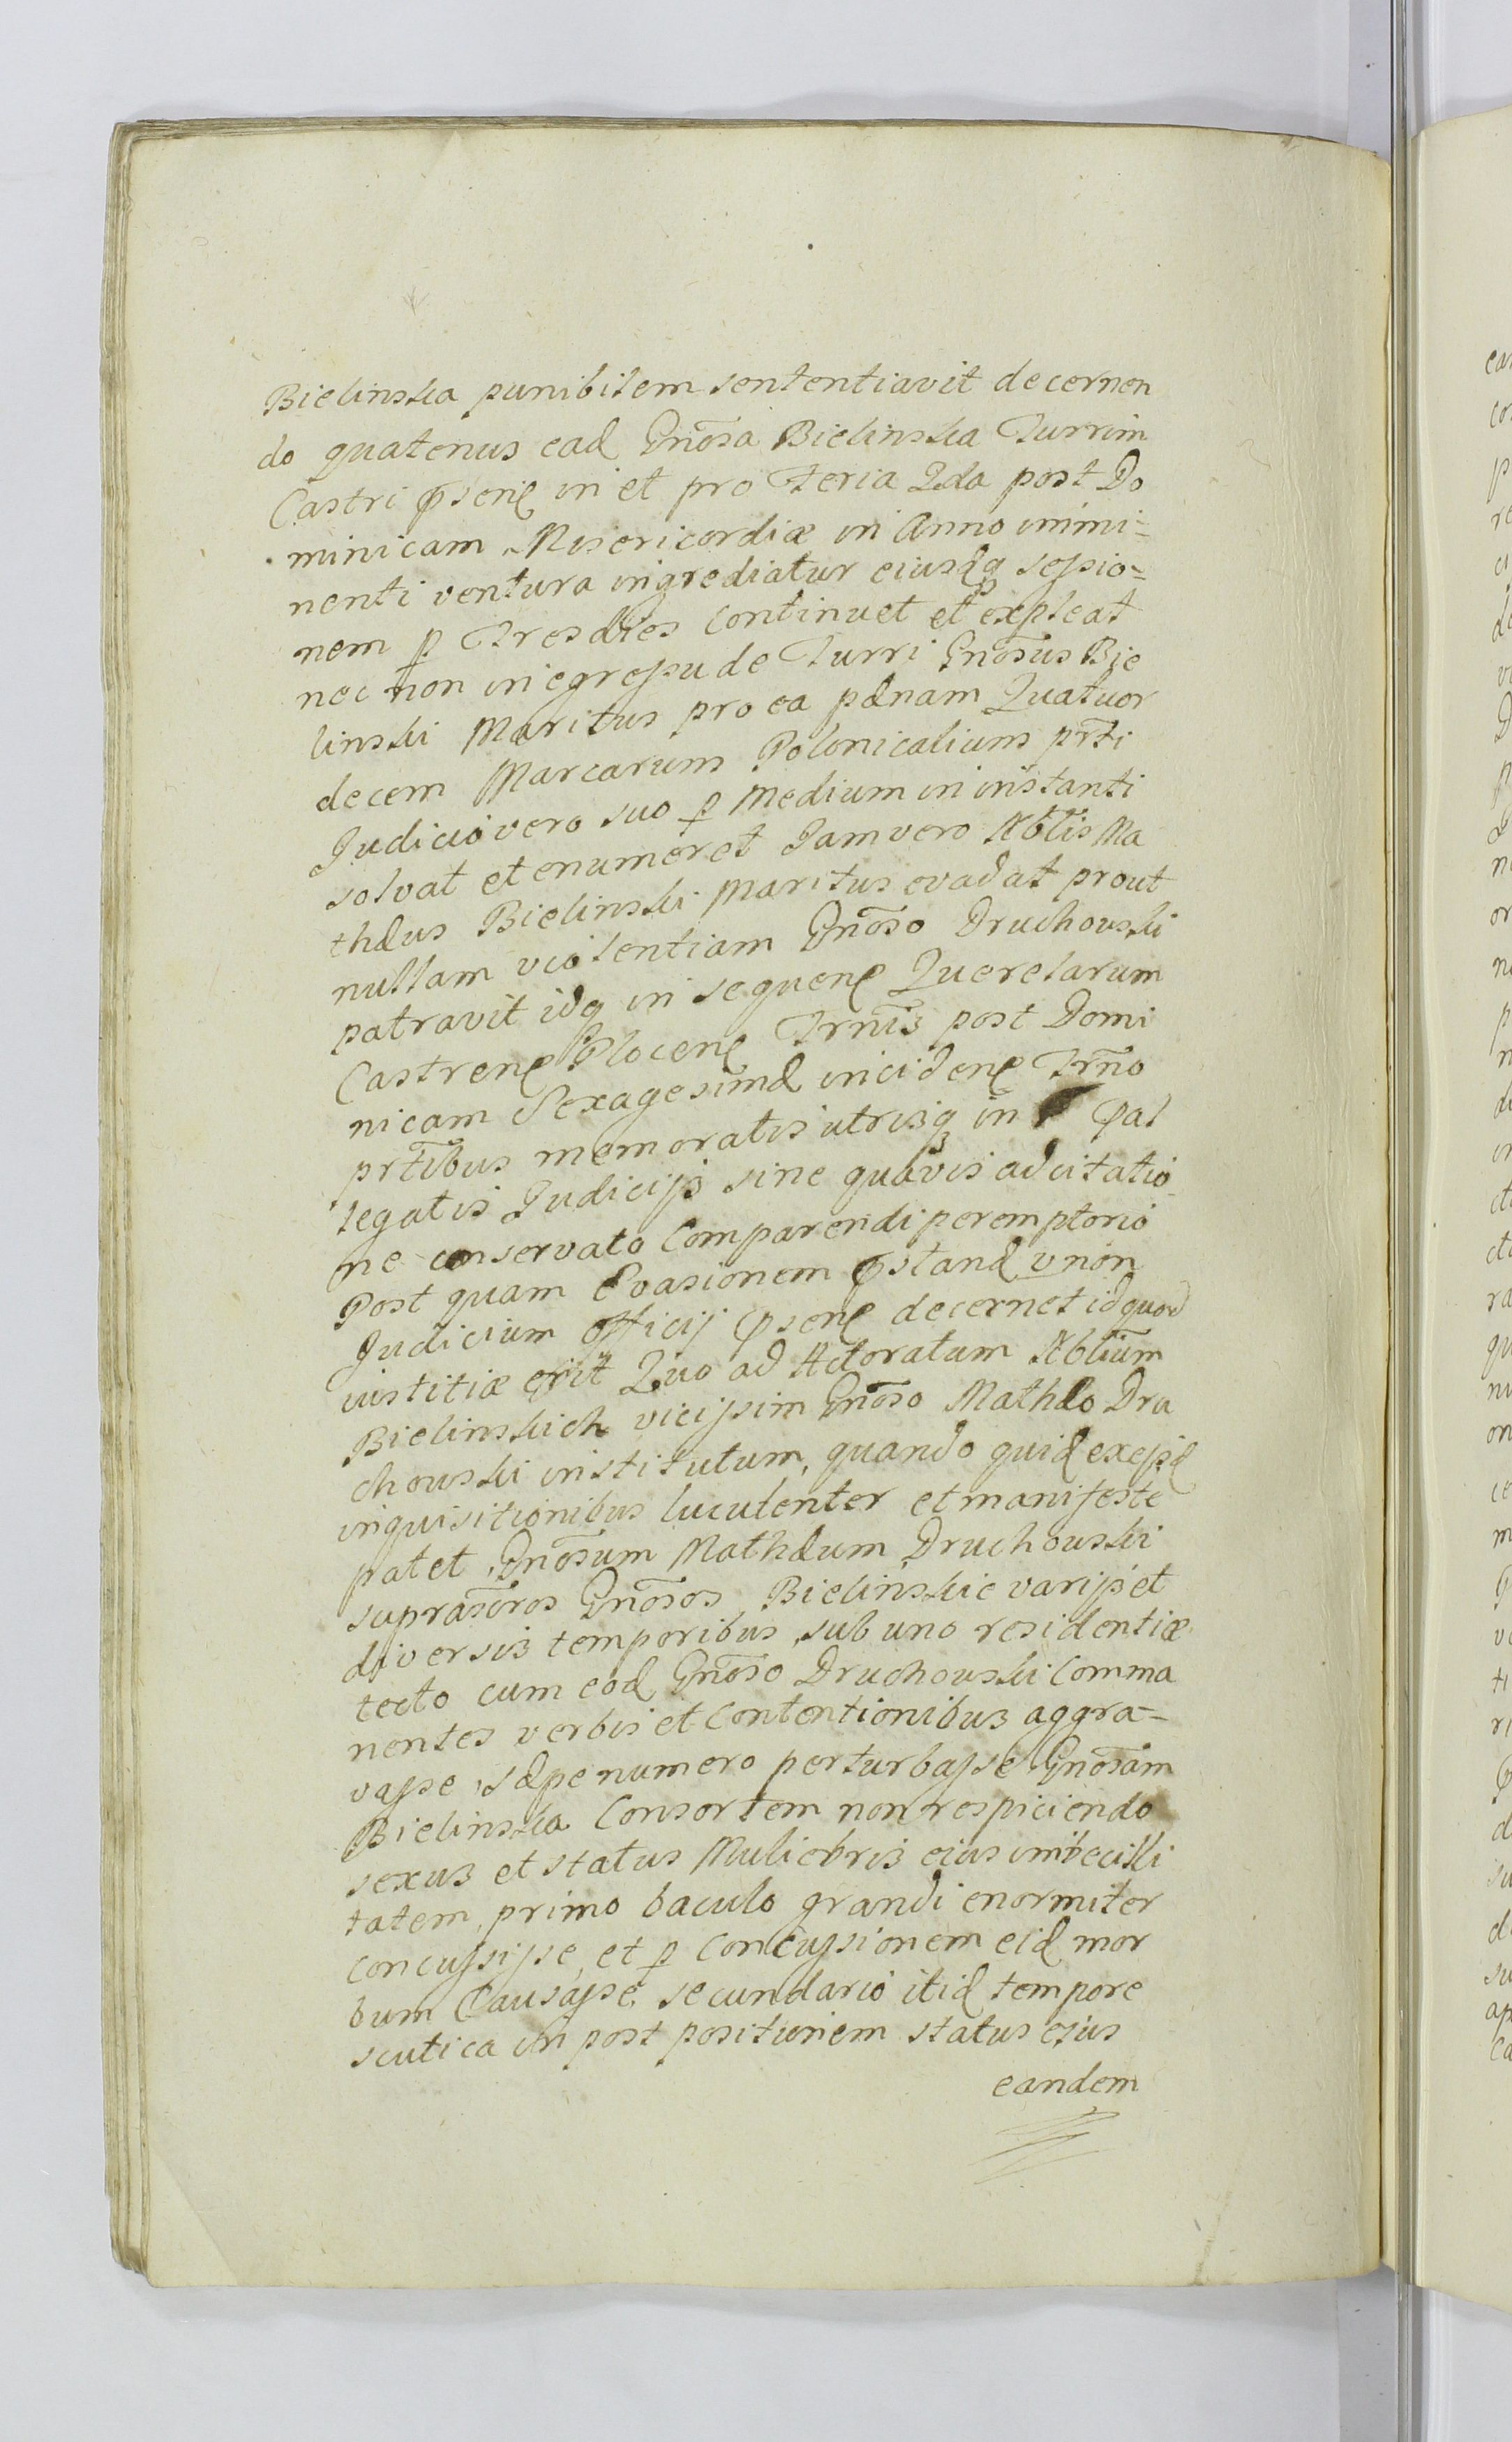 Bielinska punibilem sententiavit decernen
do quatenus ead Gnosa Bielinska Turrim
Castri pseñ in et pro Feria 2da post Do
minicam Misericordiæ in Anno immi=
nenti ventura ingrediatur eiusdq sessio=
nem p Tres dies Continuet et expleat
nec non in egressu de Turri Gnosus Bie
linski Maritus pro ea pænam Quatuor
decem Marcarum Polonicalium prti
Judicio vero suo p Medium in instanti
solvat et enumeret Jam vero Nblis Ma
thæus Bielinski Maritus evadat prout
nullam violentiam Gnoso Druchouski
patravit idq in sequeñ Querelarum
Castreñ Ploceñ Trnis post Domi
nicam Sexagesimæ incideñ Trno
prtibus memoratis utrisq in Pal
legatis Judicijs sine quavis adcitatio
ne conservato Comparendi peremptorio
Post quam Evasionem pstand v non
Judicium officij pseñ decernet id quod
iustitiæ erit Quo ad Actoratum Nblium
Bielinskich vicissim Gnoso Mathæo Dru
chouski institutum, quando quid ex eisd
inquisitionibus luculenter et manifeste
patet, Gnosum Mathæum Druchouski
suprascros Gnosos Bielinskie varijs et
diversis temporibus, sub uno residentiæ
tecto cum eod Gnoso Druchouski Comma
nentes verbis et Contentionibus aggra=
vasse, sæpenumero perturbasse Gnosam
Bielinska Consortem non respiciendo
sexus et status Muliebris eius imbecilli
tatem, primo baculo grandi enormiter
concussisse, et p Concussionem eid mor
bum Causasse, secundario itid tempore
scutica in post positionem status ejus
eandem